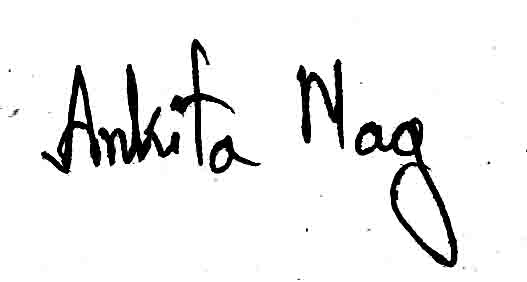 Ankita Nag